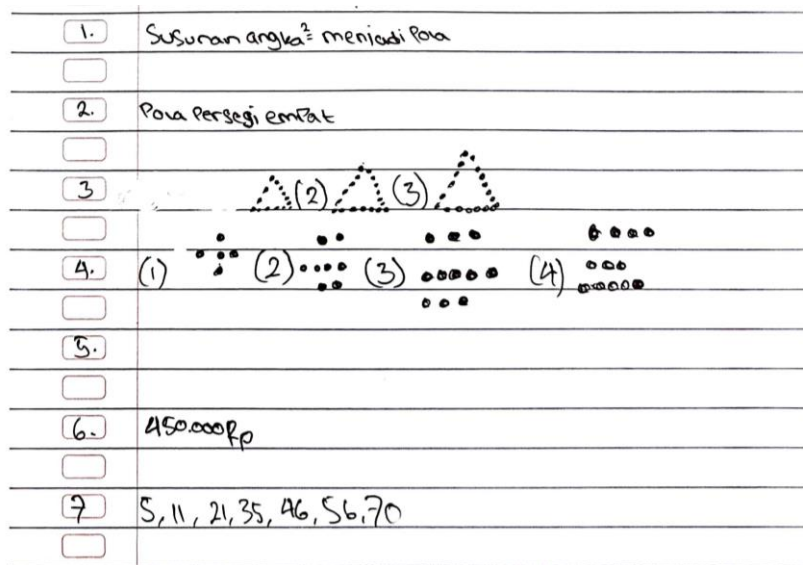 1. Susunan angka² menjadi Pola
2. Pola Persegi empat
3 (2) (3)
4. (1) (2) (3) (4)
5.
6. 450.000Rp
7 5, 11, 21, 35, 46, 56, 70